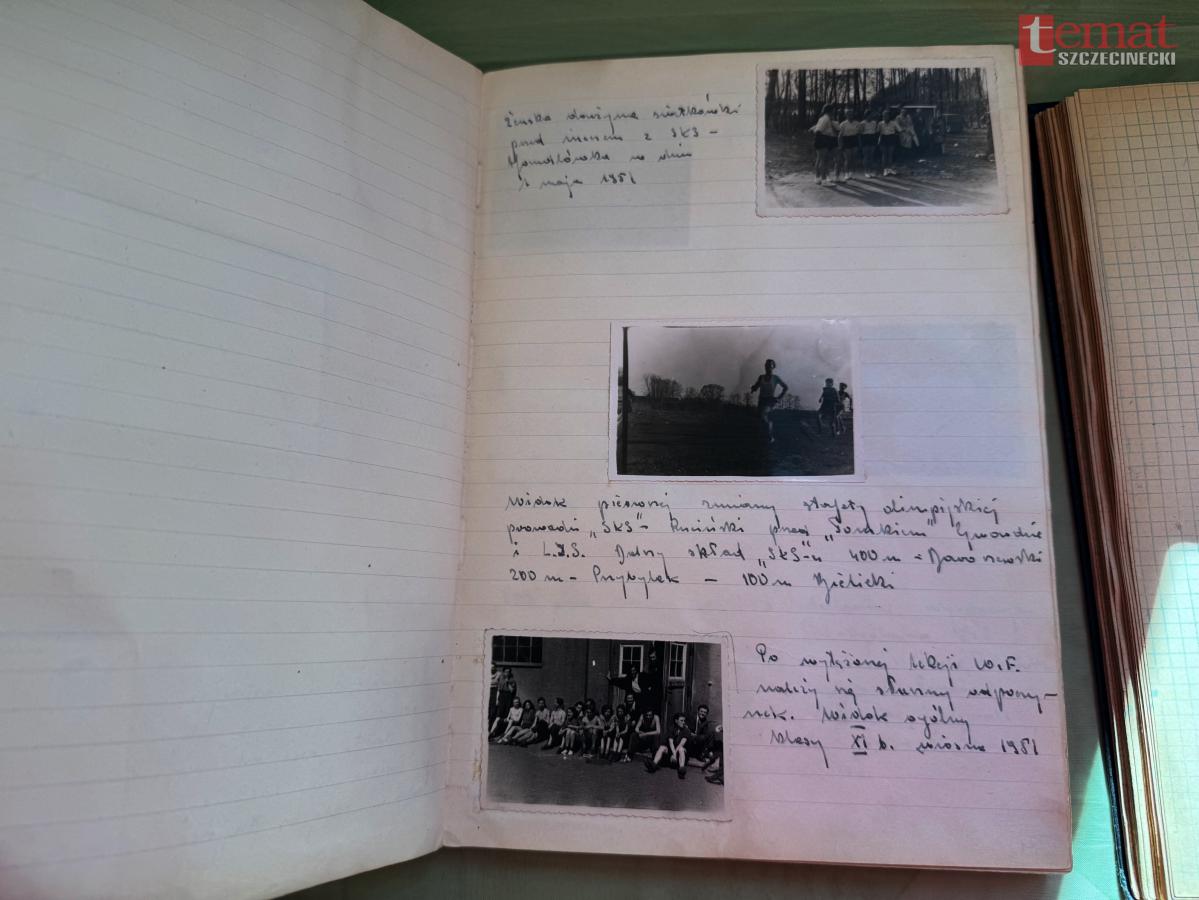 temat
SZCZECINECKI
żeńska drużyna siatkówki
przed meczem z SKS -
w dniu
maja 1951
Widok pierwszej zmiany sztafety olimpijskiej
prowadzi „SKS" - Kuciński przed Gwardii
i L.Z.S. Dalszy skład „SKS"-u 400 m -
200 m - Przybyłek - 100 m Bielicki
Po wytężonej lekcji W.F.
należy się słuszny odpoczy-
nek. Widok ogólny
klasy XI b. wiosna 1951